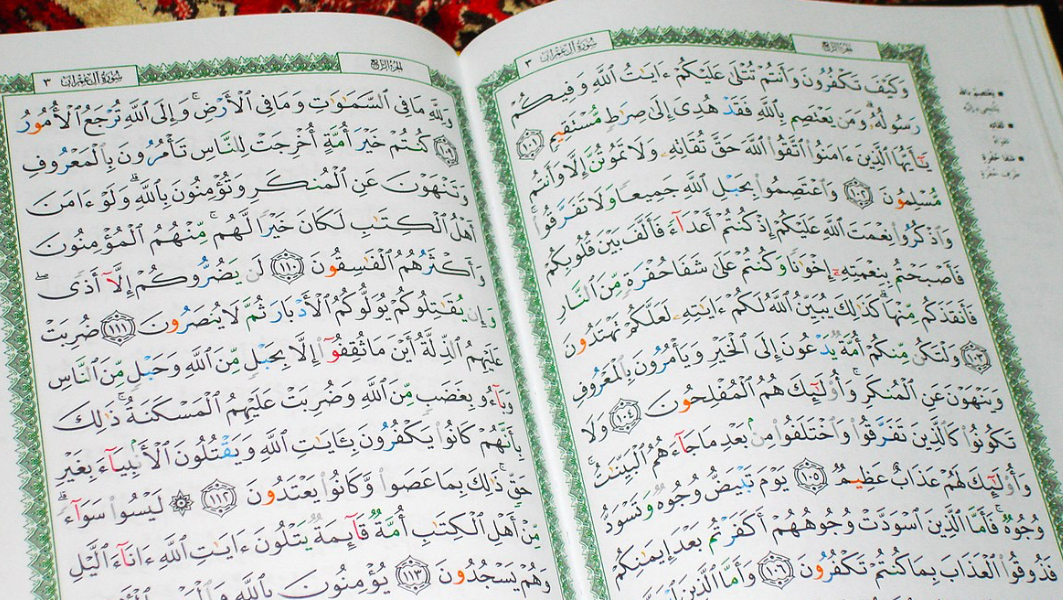 الجزء الرابع
سورة آل عمران ٣
وَكَيْفَ تَكْفُرُونَ وَأَنتُمْ تُتْلَىٰ عَلَيْكُمْ ءَايَٰتُ ٱللَّهِ وَفِيكُمْ
رَسُولُهُۥ وَمَن يَعْتَصِم بِٱللَّهِ فَقَدْ هُدِىَ إِلَىٰ صِرَٰطٍ مُّسْتَقِيمٍ ١٠١
يَٰٓأَيُّهَا ٱلَّذِينَ ءَامَنُوا۟ ٱتَّقُوا۟ ٱللَّهَ حَقَّ تُقَاتِهِۦ وَلَا تَمُوتُنَّ إِلَّا وَأَنتُم
مُّسْلِمُونَ ١٠٢ وَٱعْتَصِمُوا۟ بِحَبْلِ ٱللَّهِ جَمِيعًا وَلَا تَفَرَّقُوا۟ۚ
وَٱذْكُرُوا۟ نِعْمَتَ ٱللَّهِ عَلَيْكُمْ إِذْ كُنتُمْ أَعْدَآءً فَأَلَّفَ بَيْنَ قُلُوبِكُمْ
فَأَصْبَحْتُم بِنِعْمَتِهِۦٓ إِخْوَٰنًا وَكُنتُمْ عَلَىٰ شَفَا حُفْرَةٍ مِّنَ ٱلنَّارِ
فَأَنقَذَكُم مِّنْهَاۗ كَذَٰلِكَ يُبَيِّنُ ٱللَّهُ لَكُمْ ءَايَٰتِهِۦ لَعَلَّكُمْ تَهْتَدُونَ
١٠٣ وَلْتَكُن مِّنكُمْ أُمَّةٌ يَدْعُونَ إِلَى ٱلْخَيْرِ وَيَأْمُرُونَ بِٱلْمَعْرُوفِ
وَيَنْهَوْنَ عَنِ ٱلْمُنكَرِۚ وَأُو۟لَٰٓئِكَ هُمُ ٱلْمُفْلِحُونَ ١٠٤ وَلَا
تَكُونُوا۟ كَٱلَّذِينَ تَفَرَّقُوا۟ وَٱخْتَلَفُوا۟ مِنۢ بَعْدِ مَا جَآءَهُمُ ٱلْبَيِّنَٰتُۚ
وَأُو۟لَٰٓئِكَ لَهُمْ عَذَابٌ عَظِيمٌ ١٠٥ يَوْمَ تَبْيَضُّ وُجُوهٌ وَتَسْوَدُّ
وُجُوهٌۚ فَأَمَّا ٱلَّذِينَ ٱسْوَدَّتْ وُجُوهُهُمْ أَكَفَرْتُم بَعْدَ إِيمَٰنِكُمْ
فَذُوقُوا۟ ٱلْعَذَابَ بِمَا كُنتُمْ تَكْفُرُونَ ١٠٦ وَأَمَّا ٱلَّذِينَ
يعتصم بالله
تقاته
شفا حفرة
طرف حفرة
الجزء الرابع
سورة آل عمران ٣
وَلِلَّهِ مَا فِى ٱلسَّمَٰوَٰتِ وَمَا فِى ٱلْأَرْضِۚ وَإِلَى ٱللَّهِ تُرْجَعُ ٱلْأُمُورُ
١٠٩ كُنتُمْ خَيْرَ أُمَّةٍ أُخْرِجَتْ لِلنَّاسِ تَأْمُرُونَ بِٱلْمَعْرُوفِ
وَتَنْهَوْنَ عَنِ ٱلْمُنكَرِ وَتُؤْمِنُونَ بِٱللَّهِۗ وَلَوْ ءَامَنَ
أَهْلُ ٱلْكِتَٰبِ لَكَانَ خَيْرًا لَّهُمۚ مِّنْهُمُ ٱلْمُؤْمِنُونَ
وَأَكْثَرُهُمُ ٱلْفَٰسِقُونَ ١١٠ لَن يَضُرُّوكُمْ إِلَّآ أَذًىۖ
وَإِن يُقَٰتِلُوكُمْ يُوَلُّوكُمُ ٱلْأَدْبَارَ ثُمَّ لَا يُنصَرُونَ ١١١ ضُرِبَتْ
عَلَيْهِمُ ٱلذِّلَّةُ أَيْنَ مَا ثُقِفُوٓا۟ إِلَّا بِحَبْلٍ مِّنَ ٱللَّهِ وَحَبْلٍ مِّنَ ٱلنَّاسِ
وَبَآءُو بِغَضَبٍ مِّنَ ٱللَّهِ وَضُرِبَتْ عَلَيْهِمُ ٱلْمَسْكَنَةُۚ ذَٰلِكَ
بِأَنَّهُمْ كَانُوا۟ يَكْفُرُونَ بِـَٔايَٰتِ ٱللَّهِ وَيَقْتُلُونَ ٱلْأَنۢبِيَآءَ بِغَيْرِ
حَقٍّۚ ذَٰلِكَ بِمَا عَصَوا۟ وَّكَانُوا۟ يَعْتَدُونَ ١١٢ ۞ لَيْسُوا۟ سَوَآءًۗ
مِّنْ أَهْلِ ٱلْكِتَٰبِ أُمَّةٌ قَآئِمَةٌ يَتْلُونَ ءَايَٰتِ ٱللَّهِ ءَانَآءَ ٱلَّيْلِ
وَهُمْ يَسْجُدُونَ ١١٣ يُؤْمِنُونَ بِٱللَّهِ وَٱلْيَوْمِ